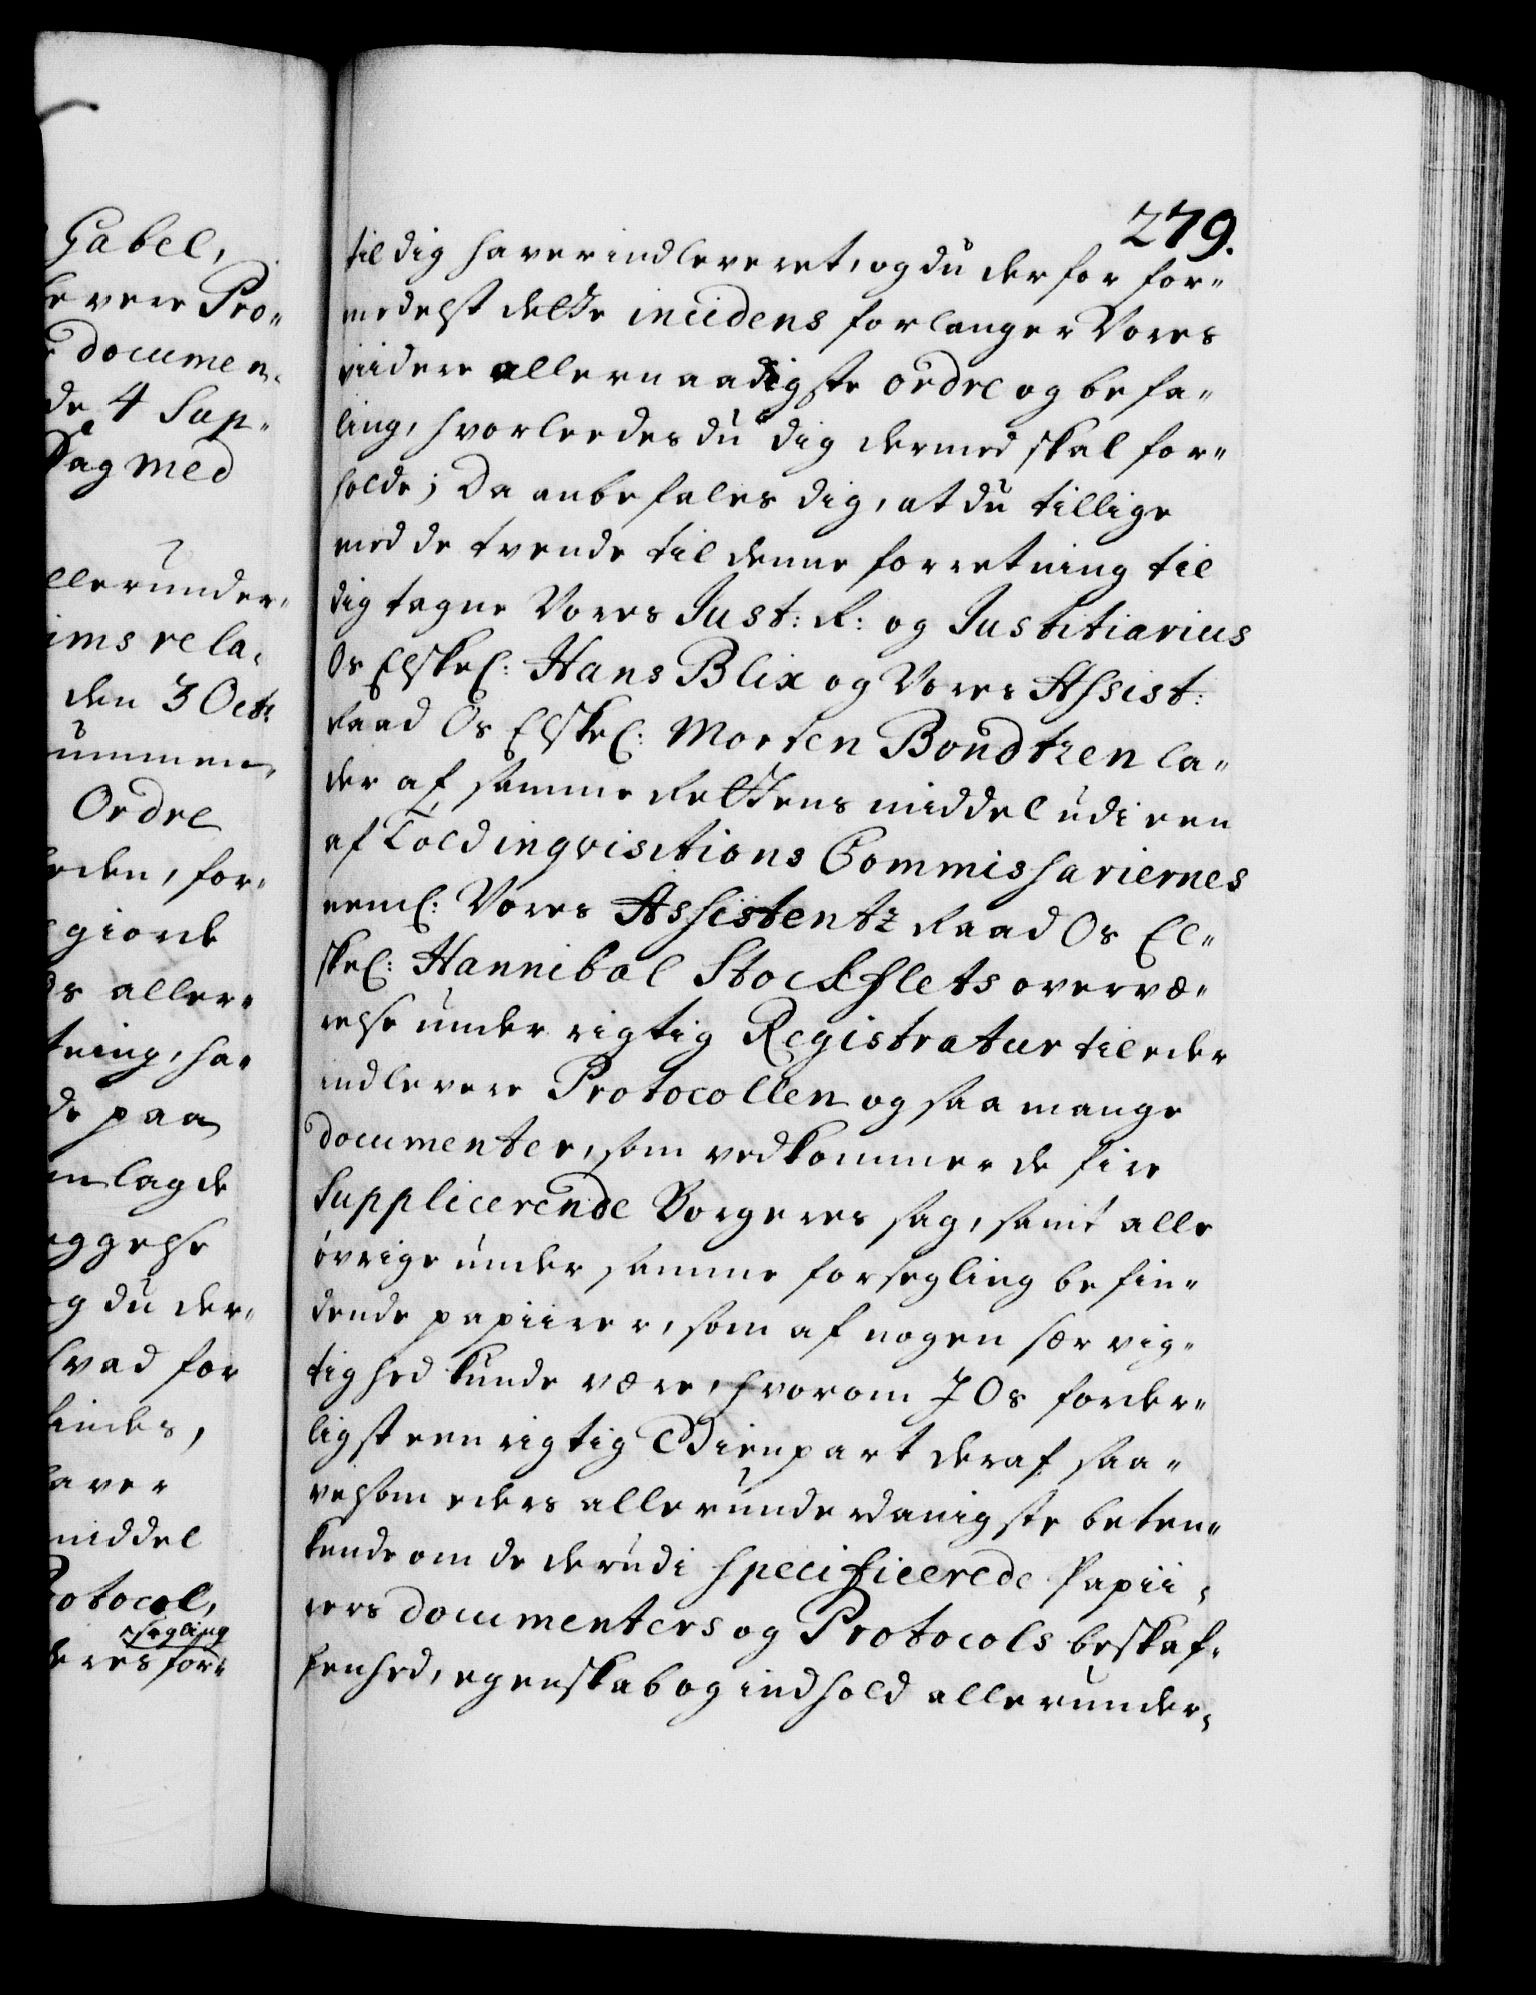 Gabel,
levere Pro"
documen,
de 4 Sup"
Sag med
llerunder"
ims rela"
den 3 Octr
ummen,
Ordre
eden, for"
giorde
ds aller"
tning, ha"
de paa
lagde
eggelse
og du der"
hvad for
findes,
haver
middel
rotocol,
segling
deres for"
279.
til dig haver indleveret, og du derfor for"
medelst dette incidens forlanger Vores
viidere allernaadigste ordre og befa"
ling, hvorleedes du dig dermed skal for"
holde; Da anbefales dig, at du tillige
med de tvende til denne forretning til
dig tagne Vores Just: R: og Justitiarius
Os Elskel: Hans Blix og Vores Assist:
Raad Os Elskel: Morten Bondtzen la"
der af samme Rettens middel udi een
af Toldinqvisitions Commissariernes
neml: Vores Assistentz Raad Os El"
skel: Hannibal Stockflets overvæ"
relse under rigtig Registratur til eder
indlevere Protocollen og saa mange
documenter, som vedkommer de fire
Supplicerende Borgeres sag, samt alle
øvrige under samme forsegling befin"
dende papiirer, som af nogen sær vig"
tighed kunde være, hvorom I Os forder"
ligst een rigtig Dienpart deraf saa"
velsom eders allerunderdanigste beten"
kende om de derudi specificerede Papii"
rers documenters og Protocols beskaf"
fenhed, egenskab og indhold allerunder"